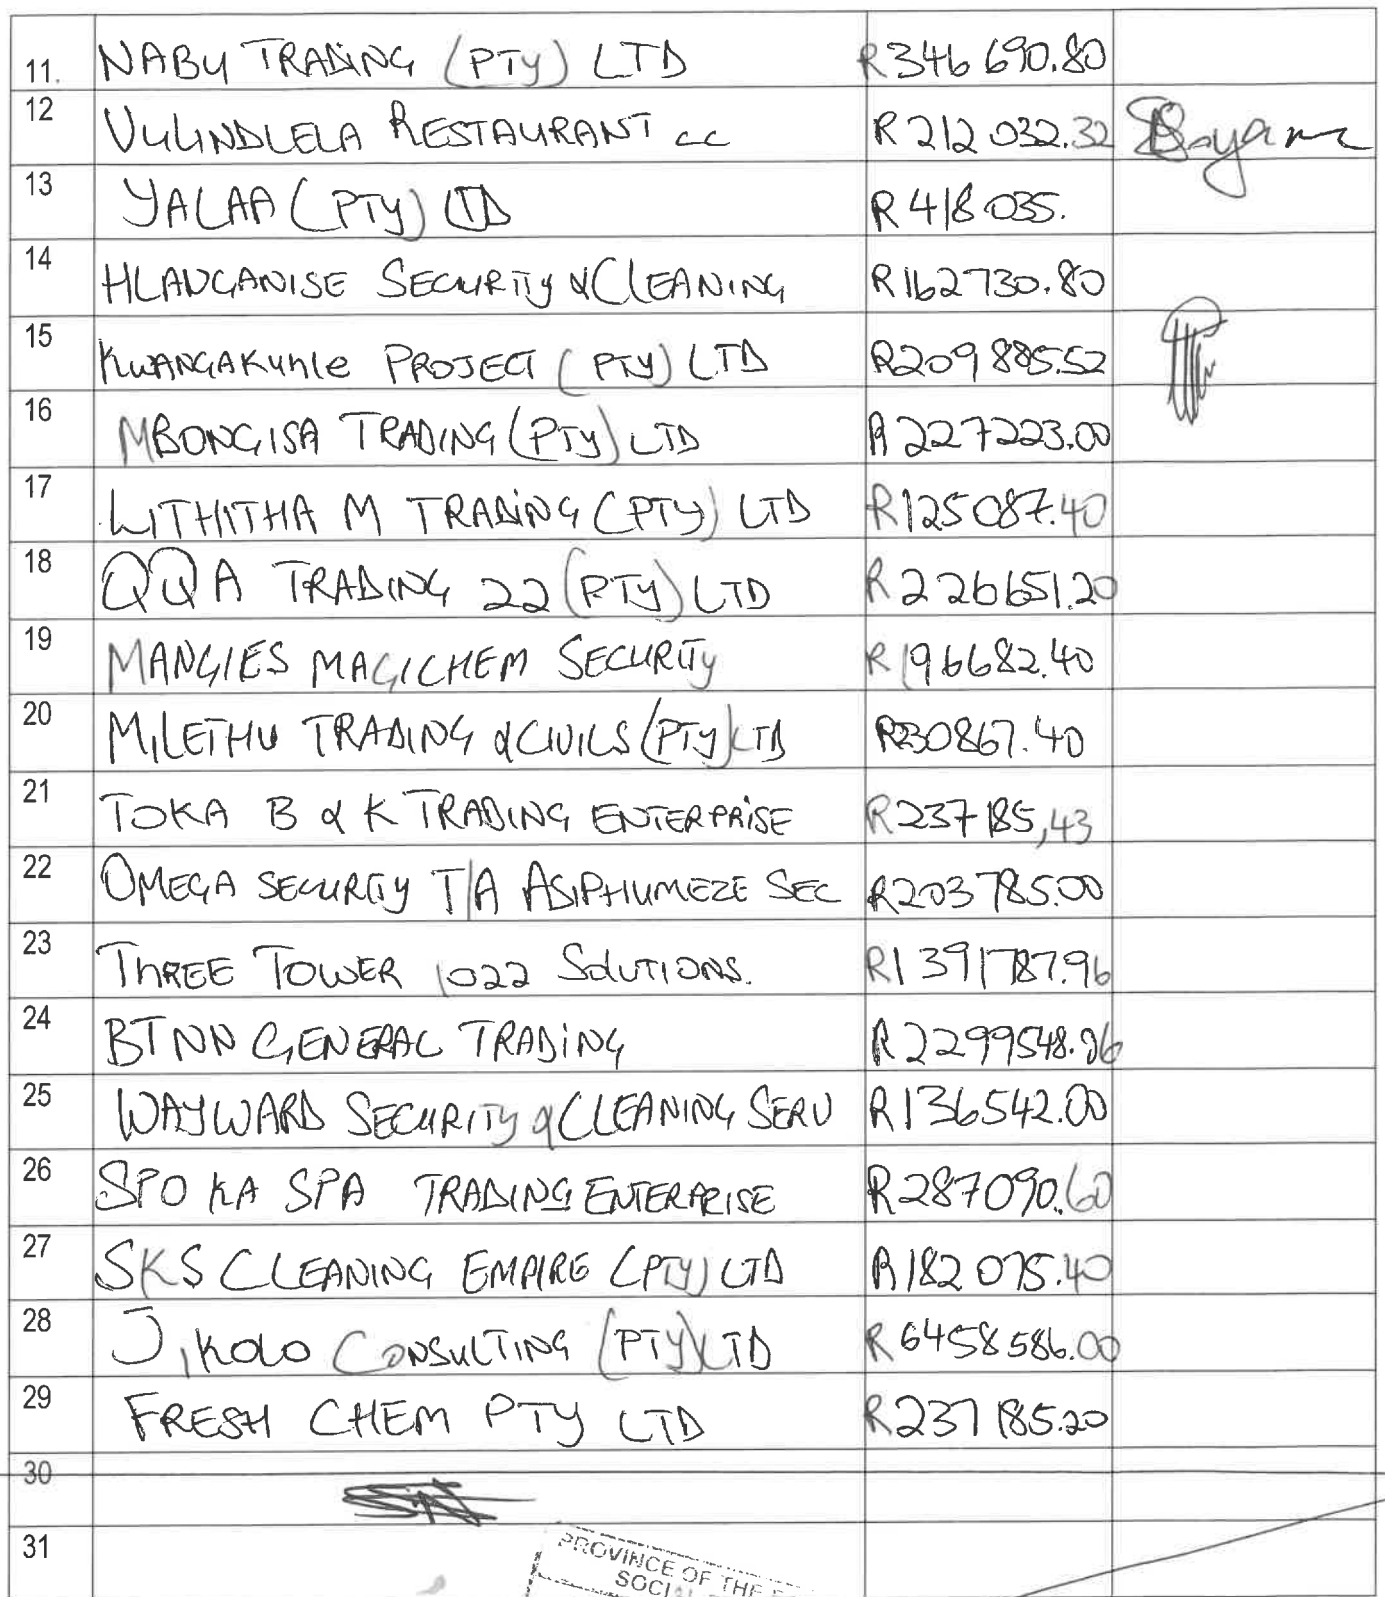 11. NABU TRADING (PTY) LTD R346 690.80
12 VULINDLELA RESTAURANT cc R 212 032.32
13 YALAA (PTY) LTD R 418 035.
14 HLANGANISE SECURITY & CLEANING R162730.80
15 KWANGAKUhle PROJECT (PTY) LTD R209 885.52
16 MBONGISA TRADING (PTY) LTD R 227223.00
17 LITHITHA M TRADING (PTY) LTD R125087.40
18 QQA TRADING 22 (PTY) LTD R 226651.20
19 MANGIES MAGICHEM SECURITY R196682.40
20 MILETHU TRADING & CIVILS (PTY) LTD R230867.40
21 TOKA B & K TRADING ENTERPRISE R237185,43
22 OMEGA SECURITY T/A ASIPHUMEZE SEC R203 785.00
23 THREE TOWER 1022 SOLUTIONS. R1 391787.96
24 BTNN GENERAL TRADING R2299548.06
25 WAYWARD SECURITY & CLEANING SERV R136542.00
26 SPO KA SPA TRADING ENTERPRISE R287090.60
27 SKS CLEANING EMPIRE (PTY) LTD R182 075.40
28 Jikolo CONSULTING (PTY) LTD R 6458 586.00
29 FRESH CHEM PTY LTD R237 185.20
30
31
PROVINCE OF THE